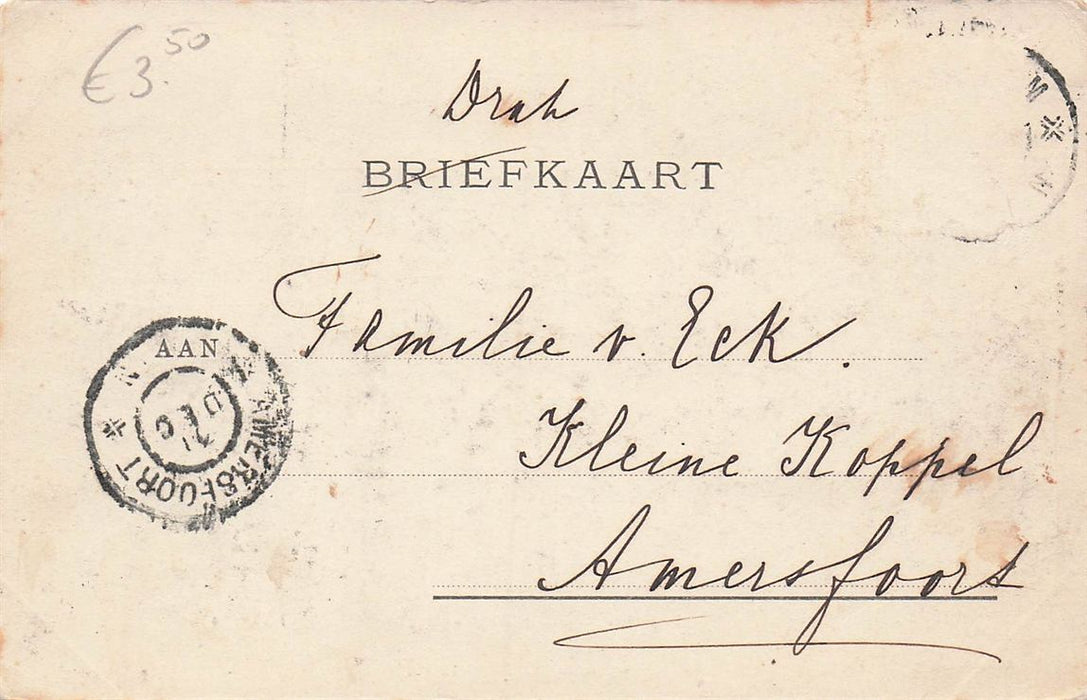 €3.50
BRIEFKAART
AAN
Familie v. Eck.
Kleine Koppel
Amersfoort
AMERSFOORT
DEC